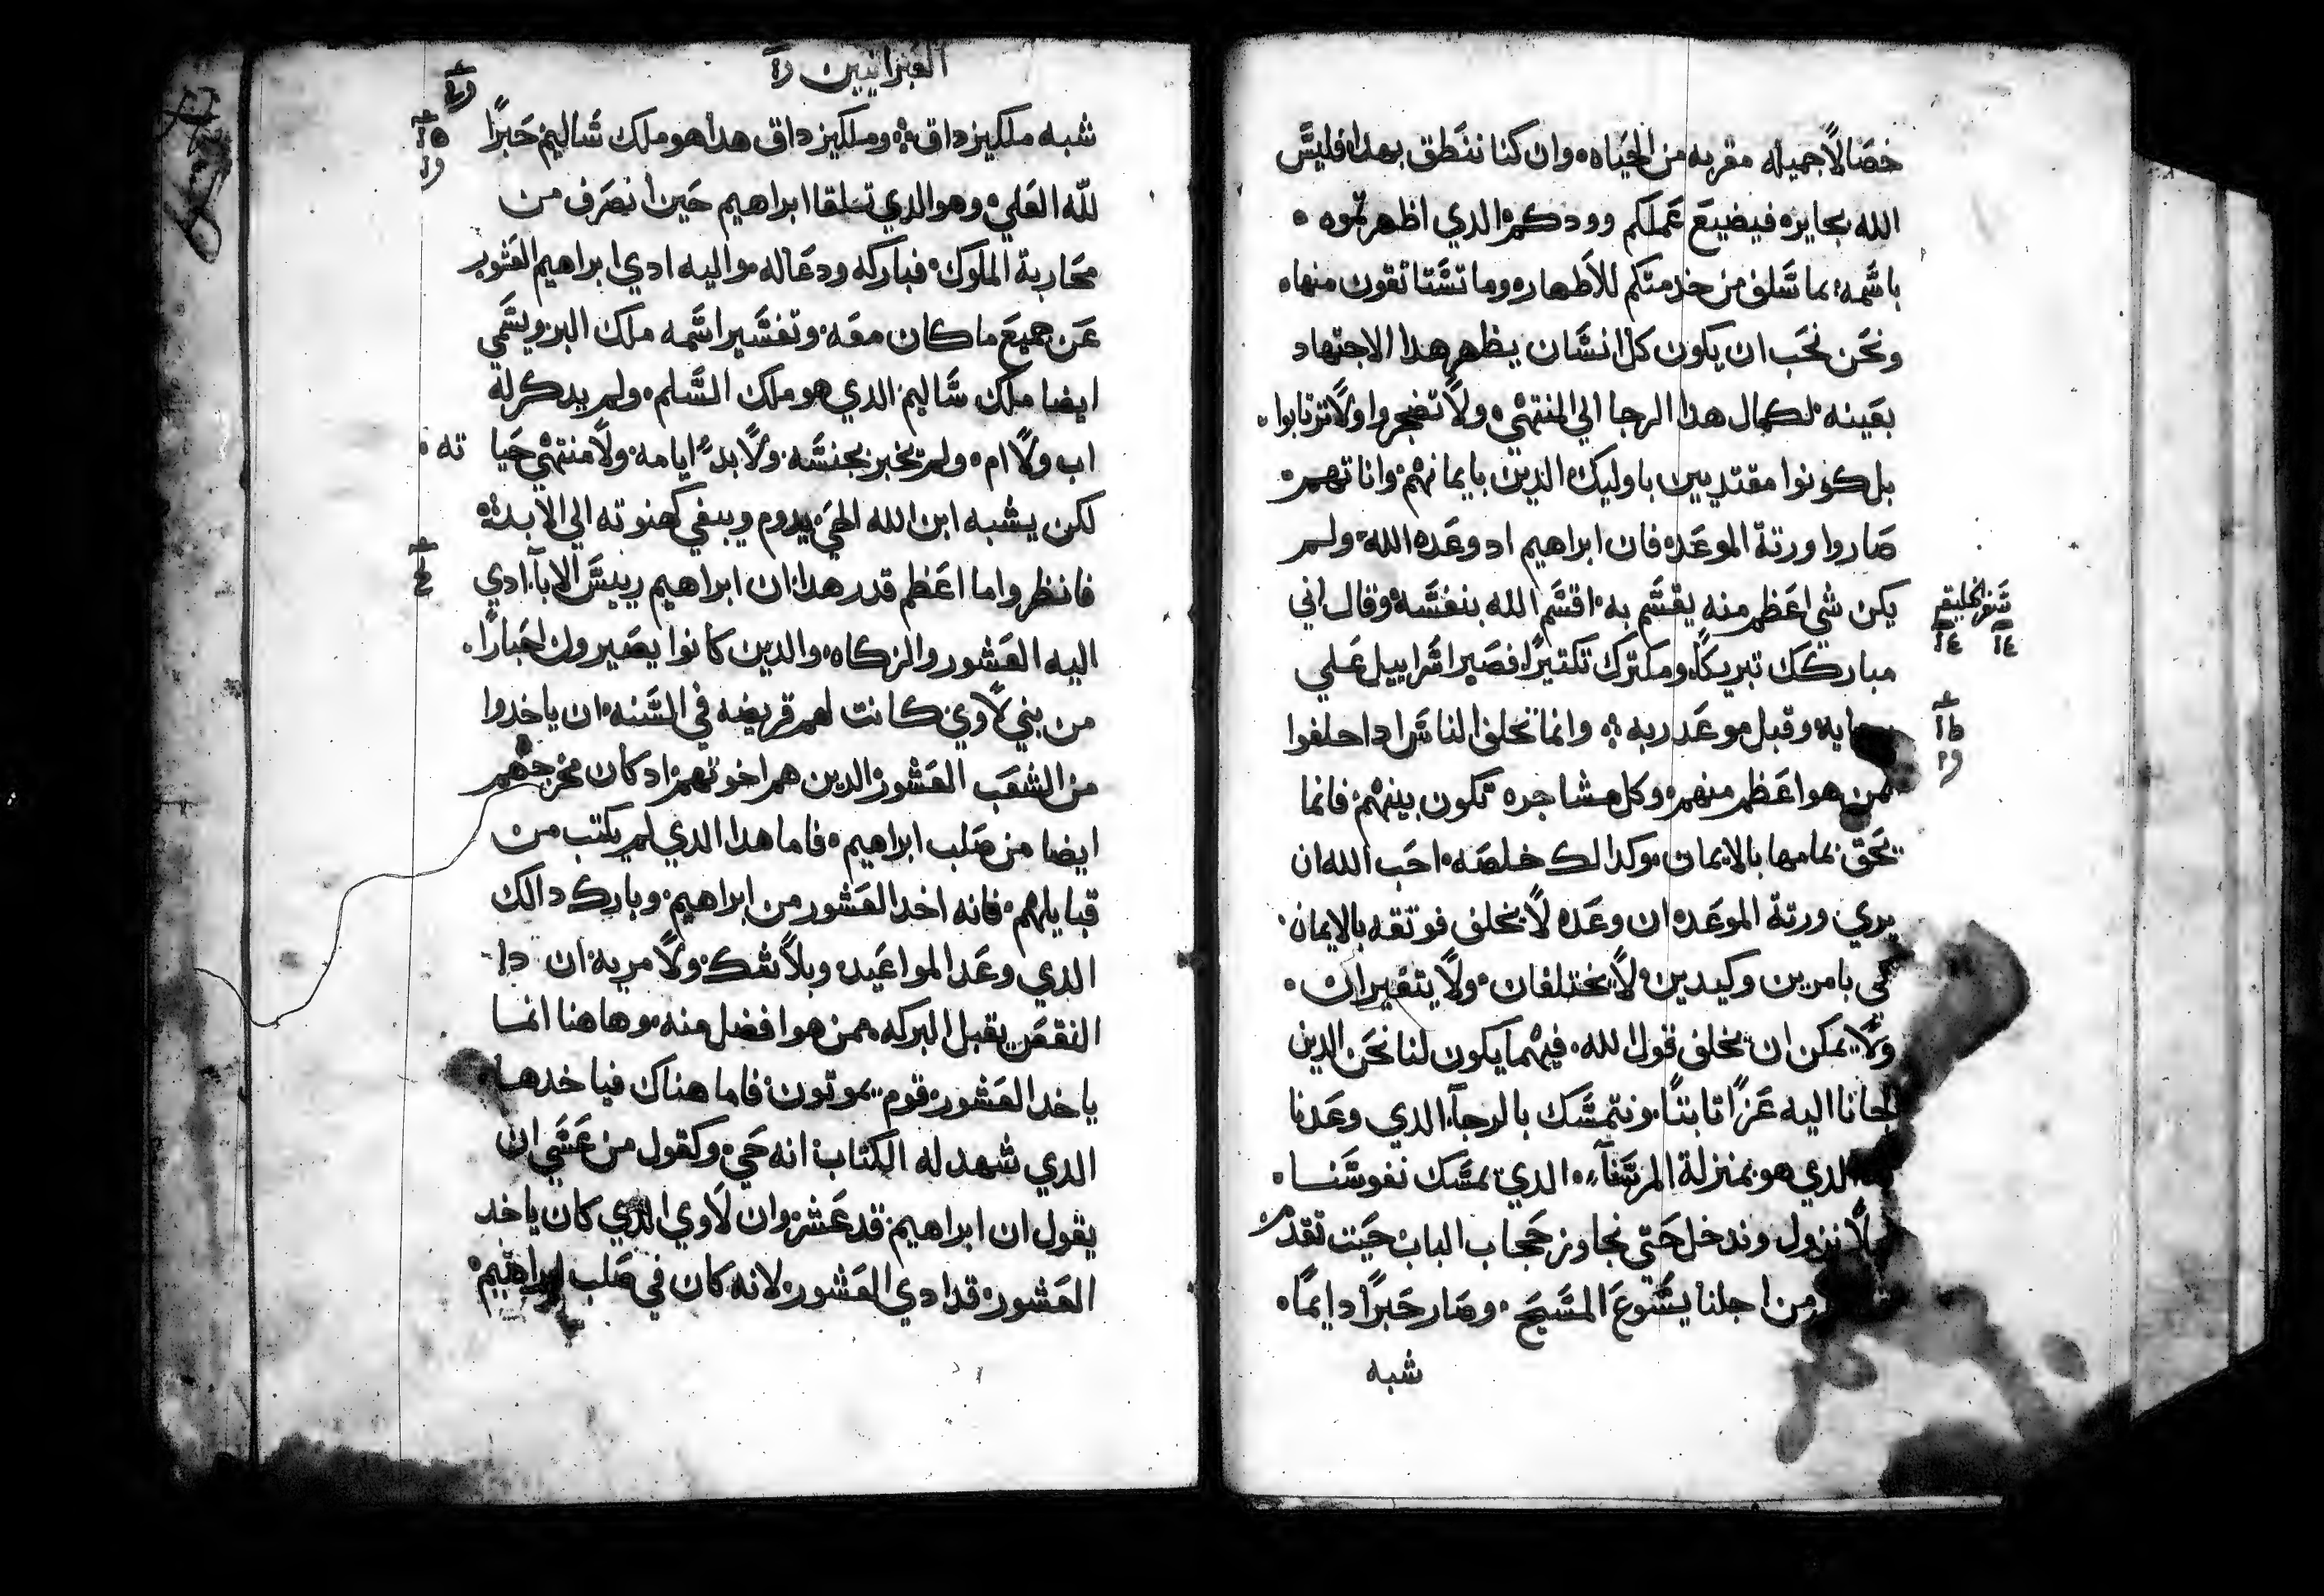 خصالاً جميله مقربه من الحياه وان كنا ننطق بهدا فليس
الله بجايره فيضيع عملكم وودكم الدي اظهرتموه
باسمه بما سلف من خدمتكم للاطهار وما تستانقون منها
ونحن نحب ان يكون كل انسان يظهر هدا الاجتهاد
بعينه لكمال هدا الرجا الي المنتهي ولا تضجروا ولا ترتابوا
بل كونوا مقتديين باوليك الدين بايمانهم واناتهم
صاروا ورتة الموعد فان ابراهيم اد وعده الله ولم
يكن شي اعظم منه يقسم به اقسم الله بنفسه وقال اني
سفر الخليقه
مباركك تبريكاً ومكترك تكتيراً فصبر اسراييل علي
وقبل موعد ربه وانما تحلف الناس ادا حلفوا
من هو اعظم منهم وكل مشاجره تكون بينهم فانما
تحق تمامها بالايمان وكدالك خاصه احب الله ان
يري ورتة الموعد ان وعده لا يخلف فوتقه بالايمان
كي بامرين وكيدين لا يختلفان ولا يتغيران
ولا يمكن ان يخلف قول الله فيهما يكون لنا نحن الدين
لجانا اليه عزاً تابتاً ونتمسك بالرجآ الدي وعدنا
الدي هو بمنزلة المرسآ الدي يمسك نفوسنا
لا نزول وندخل حتي نجاوز حجاب الباب حيت تقدم
من اجلنا يسوع المسيح وصار حبراً دايماً
شبه
العبرانيين
شبه ملكيزداق وملكيزداق هدا هو ملك ساليم حبراً
لله العلي وهو الدي تلقا ابراهيم حين انصرف من
محاربة الملوك فباركه ودعا له واليه ادي ابراهيم العشور
عن جميع ما كان معه وتفسير اسمه ملك البر ويسمي
ايضا ملك ساليم الدي هو ملك السلم ولم يدكر له
اب ولا ام ولم تخبر بجنسه ولا بدء ايامه ولا منتهي حياته
لكن يشبه ابن الله الحي يدوم ويبقي كهنوته الي الابد
فانظروا ما اعظم قدر هدا ان ابراهيم رييس الابآ ادي
اليه العشور والزكاه والدين كانوا يصيرون احباراً
من بني لاوي كانت لهم فريضه في السنه ان ياخدوا
من الشعب العشور الدين هم اخوتهم اد كان مخرجهم
ايضا من صلب ابراهيم فاما هدا الدي لم يكتب من
قبايلهم فانه اخد العشور من ابراهيم وبارك دالك
الدي وعد المواعيد وبلا شك ولا مريه ان دا
النقص يقبل البركه ممن هو افضل منه وهاهنا انما
ياخد العشور قوم يموتون فاما هناك فياخدها
الدي شهد له الكتاب انه حي وكقول من عسي ان
يقول ان ابراهيم قد عشر وان لاوي الدي كان ياخد
العشور قد ادي العشور لانه كان في صلب ابراهيم